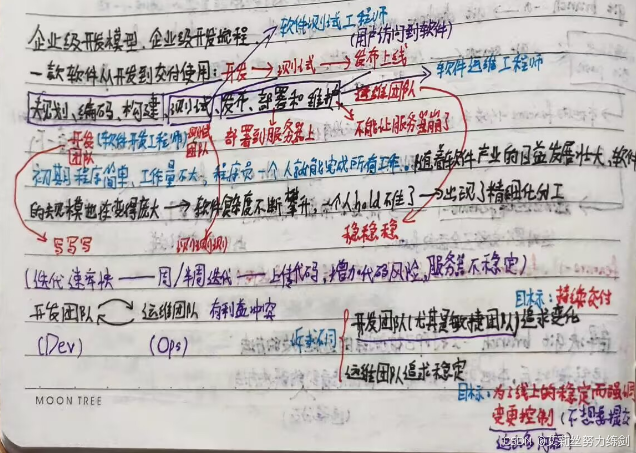 软件测试工程师
企业级开发模型、企业级开发流程
(用户访问到软件)
一款软件从开发到交付使用：开发→测试→发布上线
软件运维工程师
规划、编码、构建、测试、发布、部署和维护
运维团队
开发(软件开发工程师) 测试
团队 团队
部署到服务器上
不能让服务器崩了
初期程序简单，工作量不大，程序员一个人就能完成所有工作。随着软件产业的日益发展壮大，软件
的规模也在变得庞大→软件复杂度不断攀升，一个人hold不住了→出现了精细化分工
写写写
测测测
稳稳稳
(迭代速率快——周/半周迭代——上传代码，增加代码风险，服务器不稳定)
目标：持续交付
开发团队 运维团队 有利益冲突
开发团队(尤其是敏捷团队)追求变化
(Dev) (Ops) 诉求不同
运维团队追求稳定
目标：为了线上的稳定而强调
变更控制(不想要提交
MOON TREE
CSDN
努力练剑